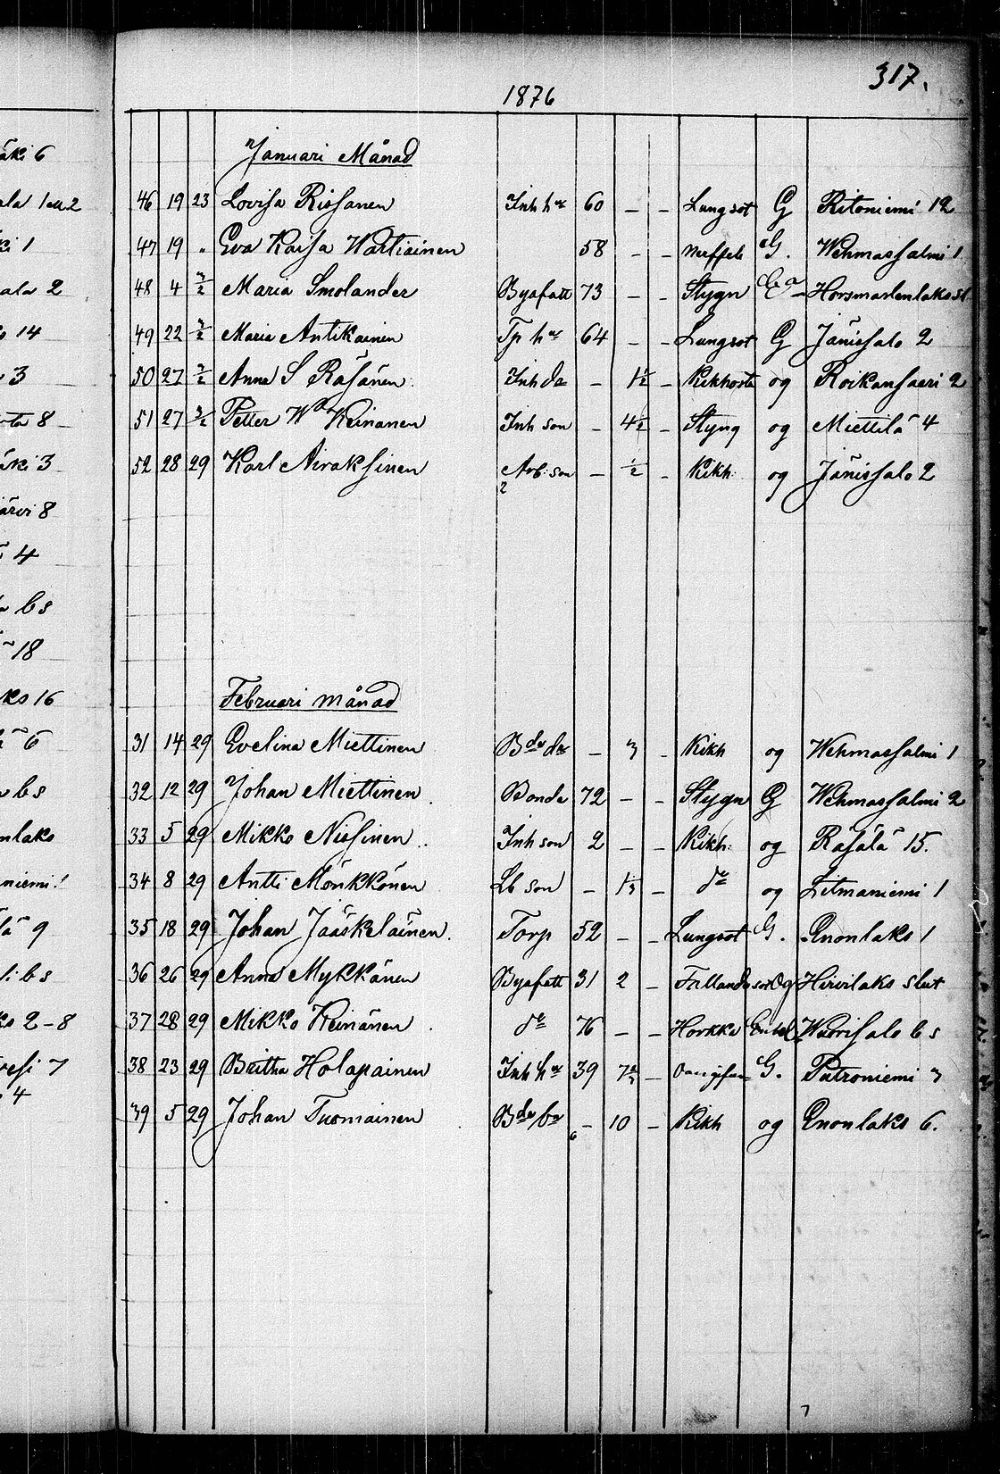 317.
1876
Januari Månad
46 19 23 Lovisa Rissanen Inh hu 60 - - Lungsot G Ritoniemi 12
47 19 . Eva Kaisa Wartiainen 58 - - G. Wehmassalmi 1
48 4 Maria Smolander Byafatt 73 - - Stygn Horsmanlaks sl
49 22 Maria Antikainen Tp hu 64 - - Lungsot G Jänissalo 2
50 27 Anna S Räsänen Inh da - 1½ - Kikhosta og Roikansaari 2
51 27 Petter Wm Keinänen Inh son - 4½ - Styng og Miettilä 4
52 28 29 Karl Airaksinen Arb. son - ½ - Kikh. og Jänissalo 2
Februari månad
31 14 29 Evelina Miettinen Bde dr - 3 - Kikh og Wehmassalmi 1
32 12 29 Johan Miettinen Bonde 72 - - Stygn G Wehmassalmi 2
33 5 29 Mikko Nissinen Inh son 2 - - Kikh. og Räsälä 15.
34 8 29 Antti Mönkkönen Lb son - 1½ - do og Litmaniemi 1
35 18 29 Johan Jääskeläinen. Torp 52 - - Lungsot G. Enonlaks 1
36 26 29 Anna Mykkänen Byafatt 31 2 - Hirvilaks slut
37 28 29 Mikko Keinänen do 76 - - Horkka Enkel Wuorisalo bs
38 23 29 Britha Holapainen Inh hu 39 - G. Putroniemi 3
39 5 29 Johan Tuomainen Bde - 10 - Kikh og Enonlaks 6.
äki 6
ala 1 a 2
ki 1
ala 2
14
3
8
äki 3
järvi 8
4
bs
18
ks 16
6
bs
nlaks
niemi 1
lä 9
bs
ks 2-8
vesi 7
4